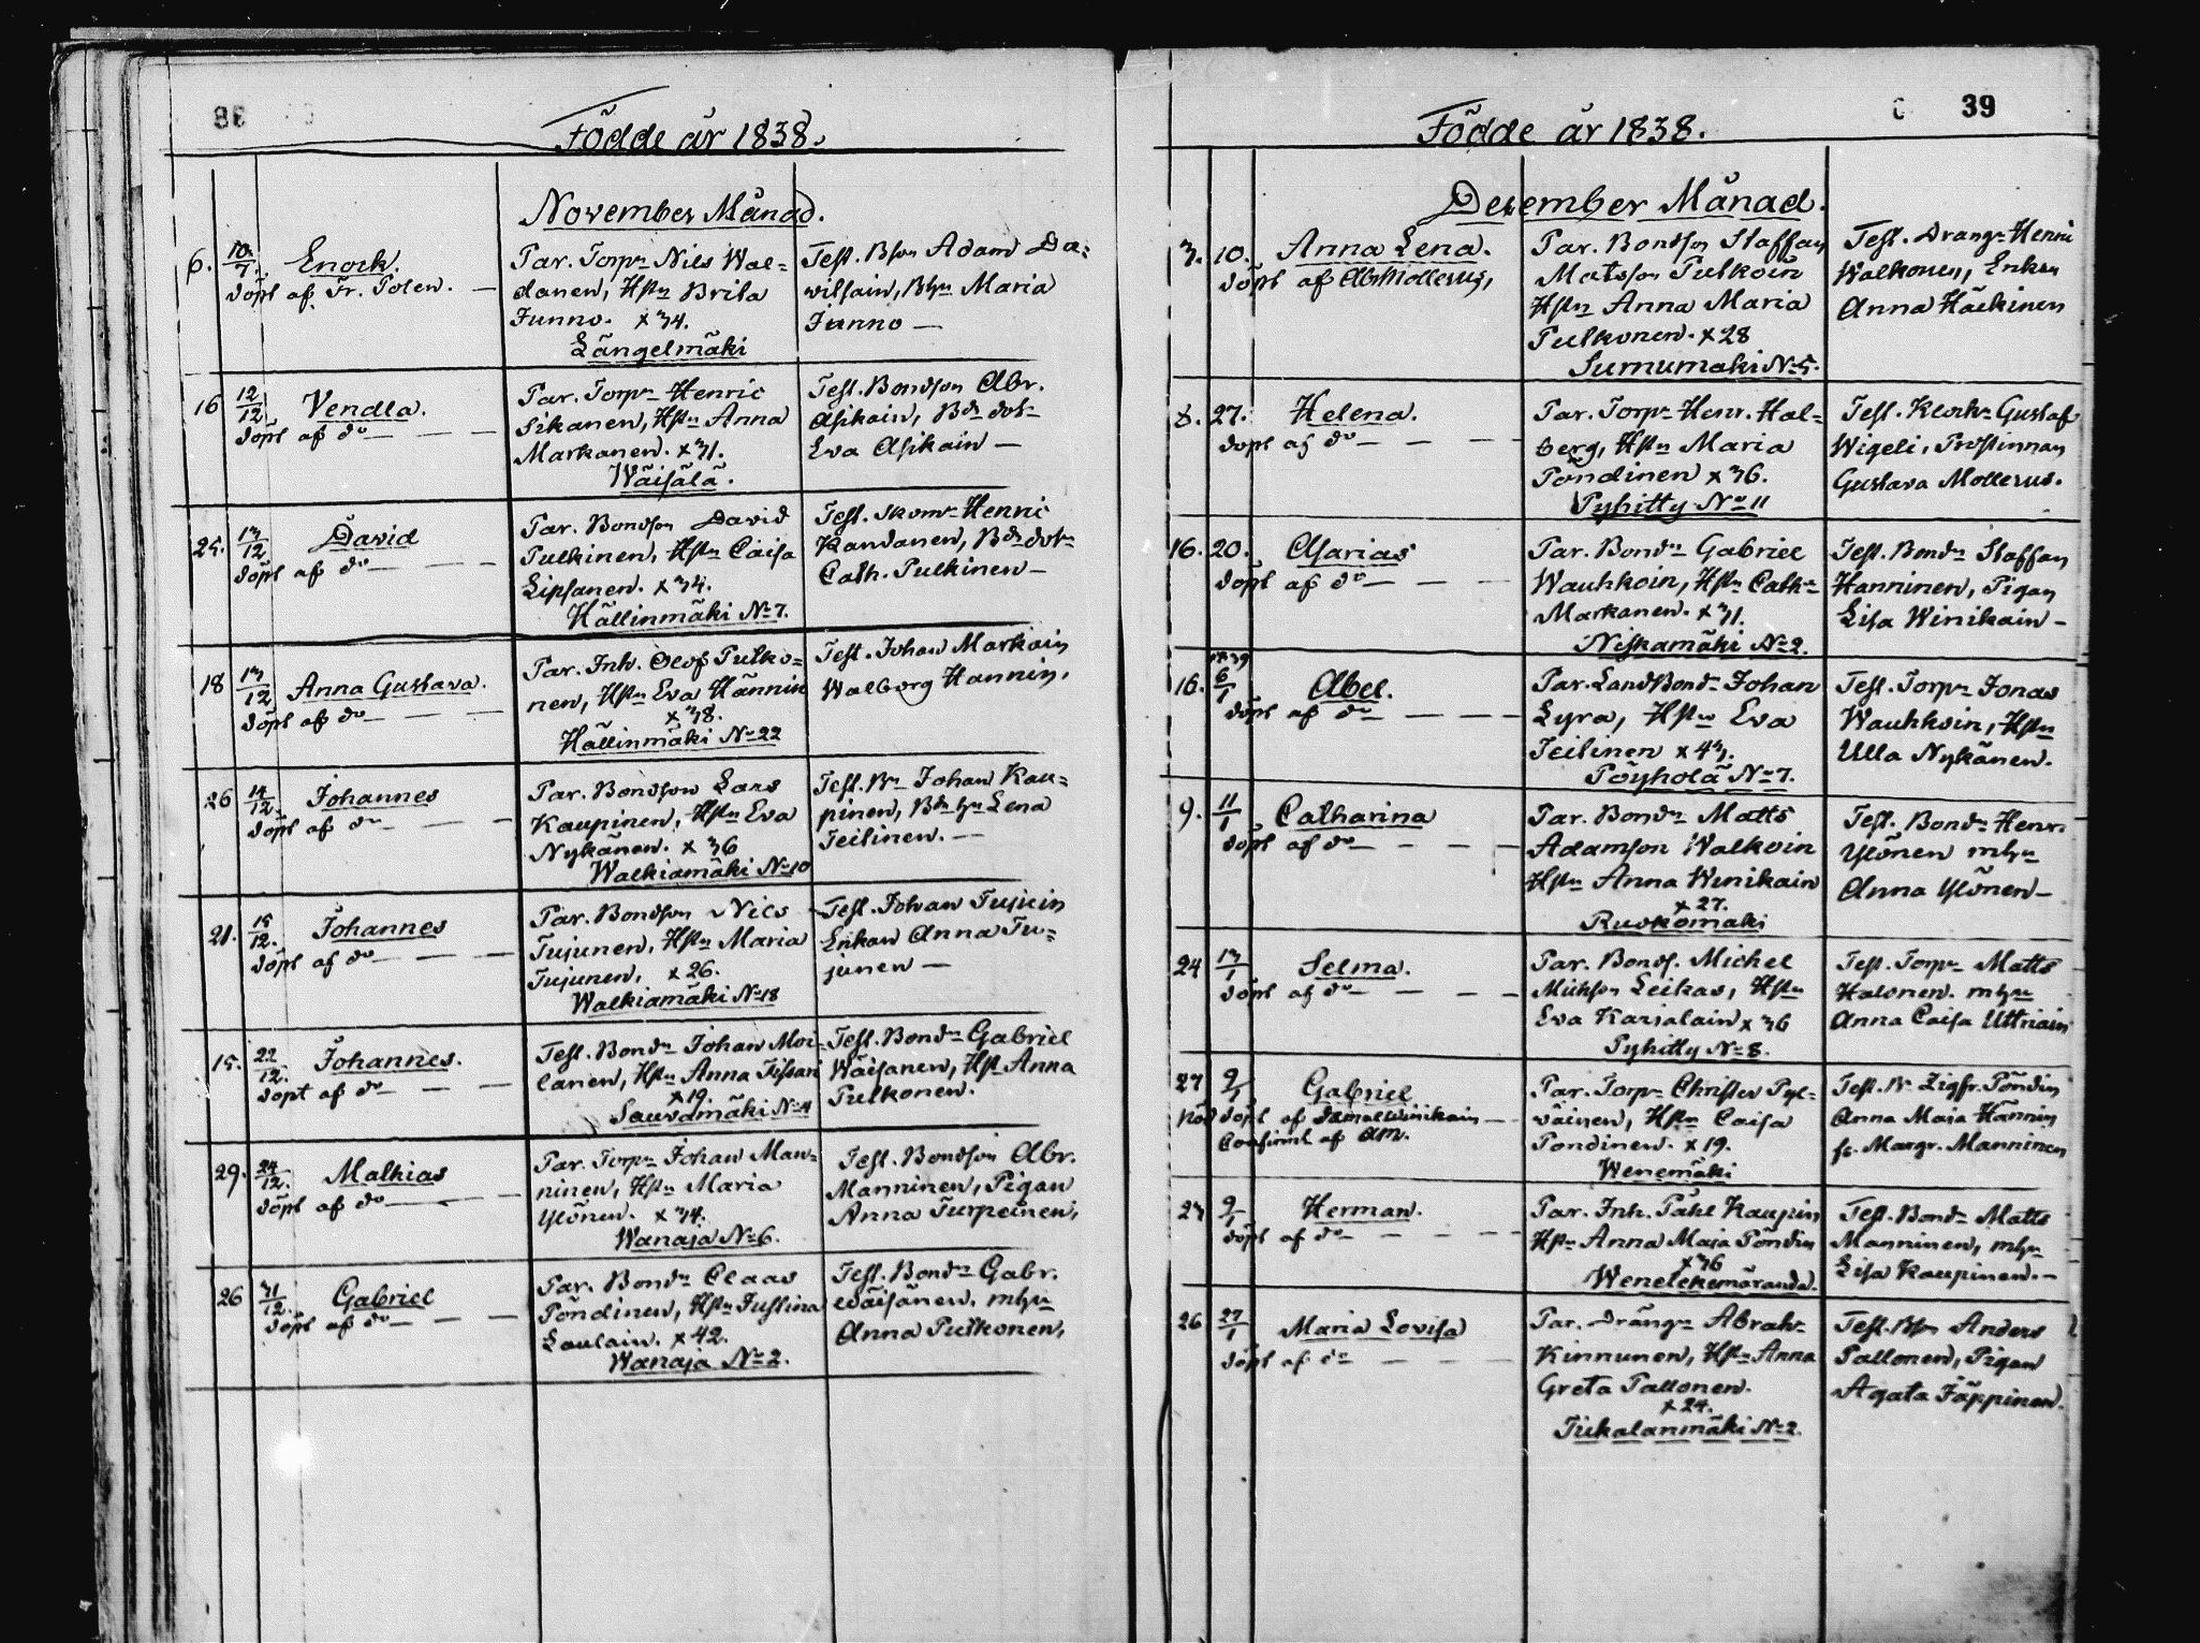 Födde år 1838.
November Månad.
6. 10/7. Enock.
döpt af Fr. Polen. —
Par. Torpn Nils Wal=
danen, Hstn Brita
Junno. x 34.
Längelmäki
Test. Bson Adam Da=
vilsain, Bhn Maria
Junno —
16 12/12 Vendla.
döpt af do — — —
Par. Torpn Henric
Sikanen, Hstn Anna
Markanen. x 31.
Wäisälä.
Test. Bondson Abr.
Asikain, Bds dotn
Eva Asikain —
25. 13/12 David
döpt af do — — —
Par. Bondson David
Pulkinen, Hstn Caisa
Lipsanen. x 34.
Hällinmäki No 7.
Test. Skomr Henric
Kandanen, Bds dotn
Cath. Pulkinen —
18 13/12 Anna Gustava.
döpt af do — — —
Par. Inh. Olof Pulko=
nen, Hstn Eva Hännin
nen, x 38.
Hällinmäki No 22
Test. Johan Markain
Walborg Hannin,
26 14/12. Johannes
döpt af do — — —
Par. Bondson Lars
Kaupinen, Hstn Eva
Nykänen. x 36
Walkiamäki No 10
Test. Bn Johan Kau=
pinen, Bds hu Lena
Teilinen. —
21. 15/12. Johannes
döpt af do — — —
Par. Bondson Nils
Tujunen, Hstn Maria
Tujunen, x 26.
Walkiamäki No 18
Test. Johan Tujuin
Enkan Anna Tu=
junen —
15. 22/12. Johannes.
döpt af do — — —
Test. Bondn Johan Moi=
lanen, Hstn Anna Tissari
x 19.
Sauvamäki No 4
Test. Bondn Gabriel
Wäisänen, Hst Anna
Pulkonen.
29. 24/12. Mathias
döpt af do — —
Par. Torpn Johan Man=
ninen, Hstn Maria
Ylönen. x 34.
Wanaja No 6.
Test. Bondson Abr.
Manninen, Pigan
Anna Turpeinen,
26 31/12. Gabriel
döpt af do — — —
Par. Bondn Claas
Pöndinen, Hstn Justina
Laulain. x 42.
Wanaja No 2.
Test. Bondn Gabr.
Wäisänen. mhu
Anna Pulkonen,
39
Födde år 1838.
December Månad.
3. 10. Anna Lena.
döpt af Abr Mollerus,
Par. Bondson Staffan
Matsson Pulkoin
Hstn Anna Maria
Pulkonen. x 28
Surnumaki No 5.
Test. Drangn Henric
Walkonen, Enkan
Anna Häckinen
8. 27. Helena.
döpt af do — — —
Par. Torpn Henr. Hal=
berg, Hstn Maria
Pöndinen x 36.
Pyhitty No 11
Test. Klockn Gustaf
Wigeli, Prostinnan
Gustava Mollerus.
16. 20. Asarias
döpt af do — — —
Par. Bondn Gabriel
Wauhkoin, Hstn Cath=
Markanen. x 31.
Niskamäki No 2.
Test. Bondn Staffan
Hanninen, Pigan
Lisa Winikain —
16. 1839 6/1 Abel.
döpt af do — — —
Par. LandBondn Johan
Lyra, Hstn Eva
Teilinen x 43.
Pöyholä No 7.
Test. Torpn Jonas
Wauhkoin, Hstn
Ulla Nykänen.
9. 11/1 Catharina
döpt af do — — —
Par. Bondn Matts
Adamson Walkoin
Hstn Anna Winikain
x 27.
Ruokomäki
Test. Bondn Henr.
Ylönen mhu
Anna Ylönen —
24 13/1 Selma.
döpt af do — — —
Par. Bonds. Michel
Michson Leikas, Hstn
Eva Karjalain x 36
Pyhitty No 8.
Test. Torpn Matts
Halonen. mhu
Anna Caisa Uttriain
27 9/1 Gabriel
Nöd döpt af Samuel Winikain —
Confirmt af AM.
Par. Torpn Christer Pyl=
väinen, Hstn Caisa
Pondinen. x 19.
Wenemäki
Test. Bn Zigfr. Pöndin
Anna Maja Hännin
fr. Margr. Manninen
23 9/1 Herman.
döpt af do — — —
Par. Inh. Påhl Kaupin
Hstn Anna Maja Pöndin
x 36
Wenetekemäranda.
Test. Bondn Matts
Manninen, mhu
Lisa Kaupinen. —
26 27/1 Maria Lovisa
döpt af do — — —
Par. Drängn Abrah=
Kinnunen, Hstn Anna
Greta Pallonen.
x 24.
Tiikalanmäki No 2.
Test. Bson Anders
Pallonen, Pigan
Agata Jäppinen.